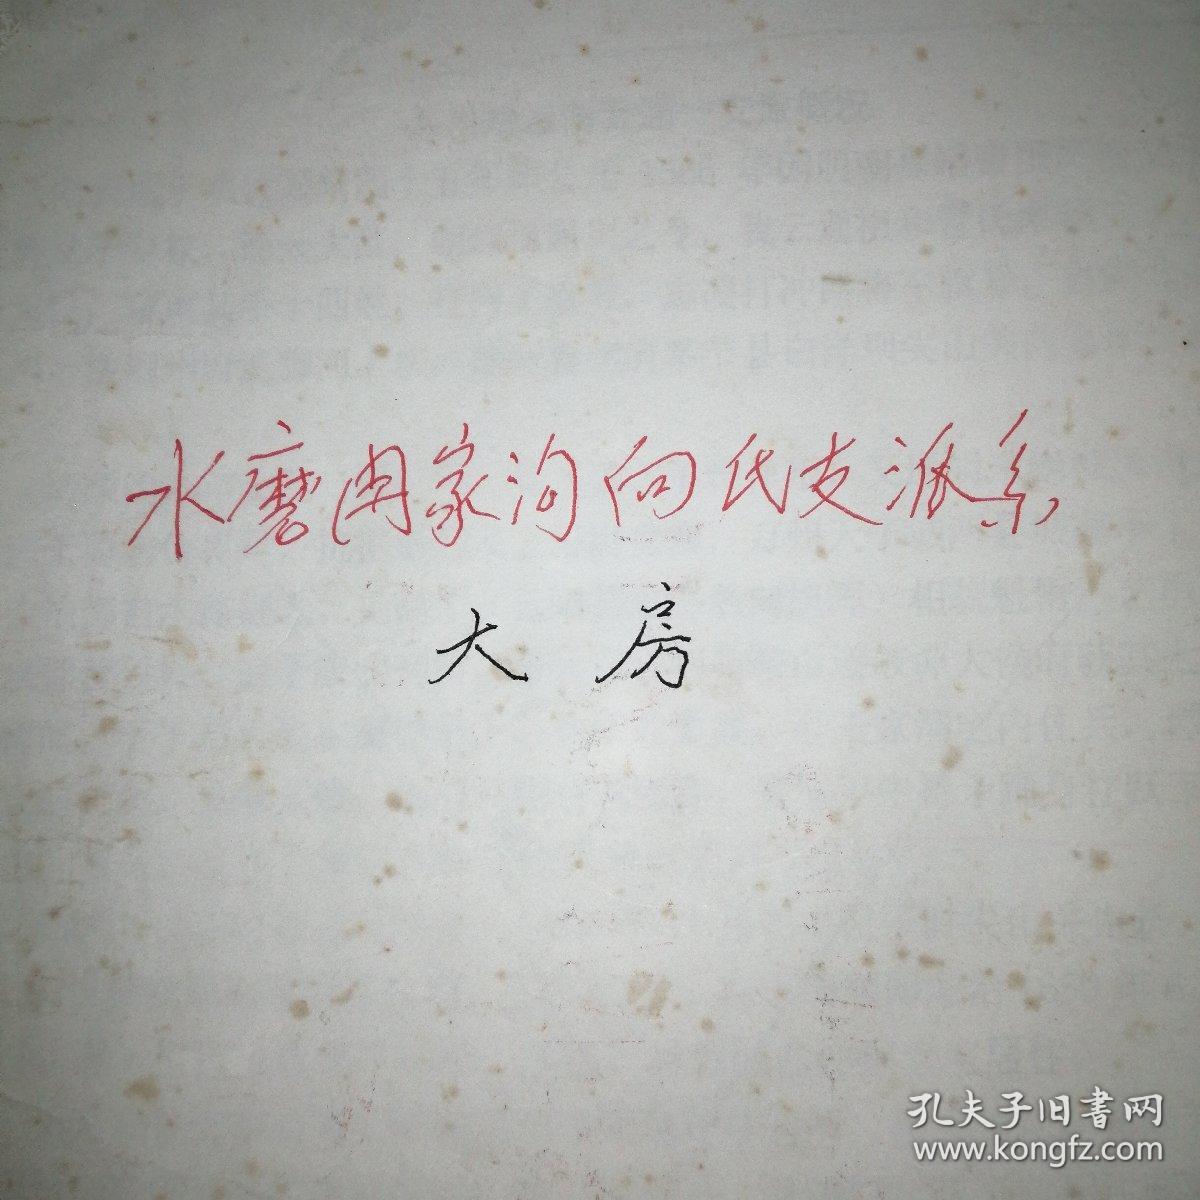 水磨冉家沟向氏支派系
大房
孔夫子旧書网
www.kongfz.com